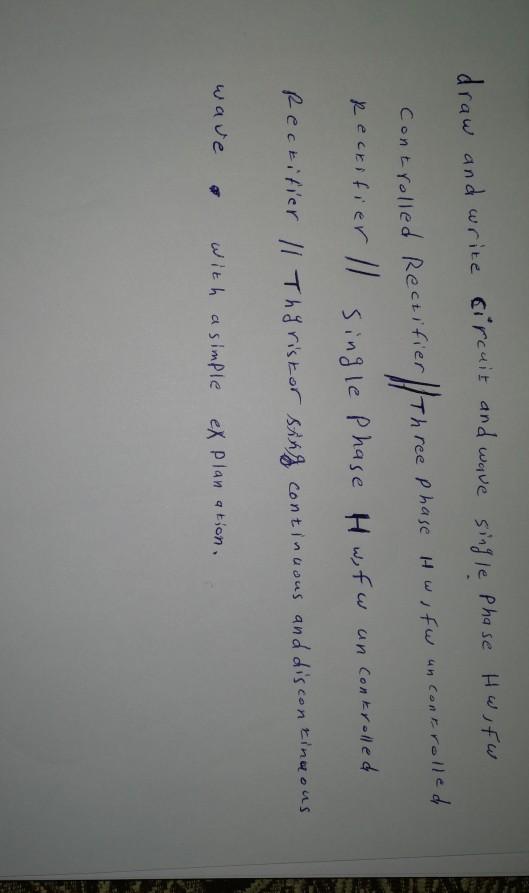 draw and write circuit and wave single phase Hw, fw
Controlled Rectifier // Three phase Hw, fw uncontrolled
Rectifier // single phase Hw, fw uncontrolled
Rectifier // Thyristor continuous and discontinuous
wave. with a simple explanation.